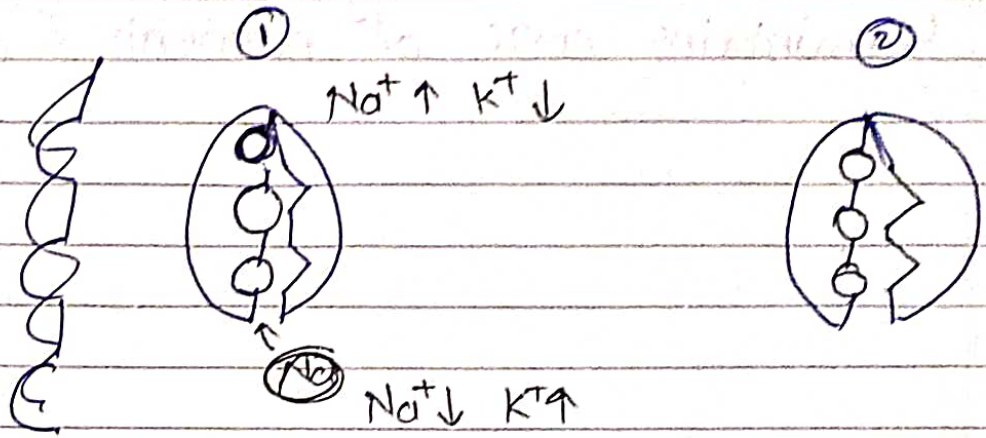 ① ②
Na⁺ ↑ K⁺ ↓
Na
Na⁺ ↓ K⁺ ↑